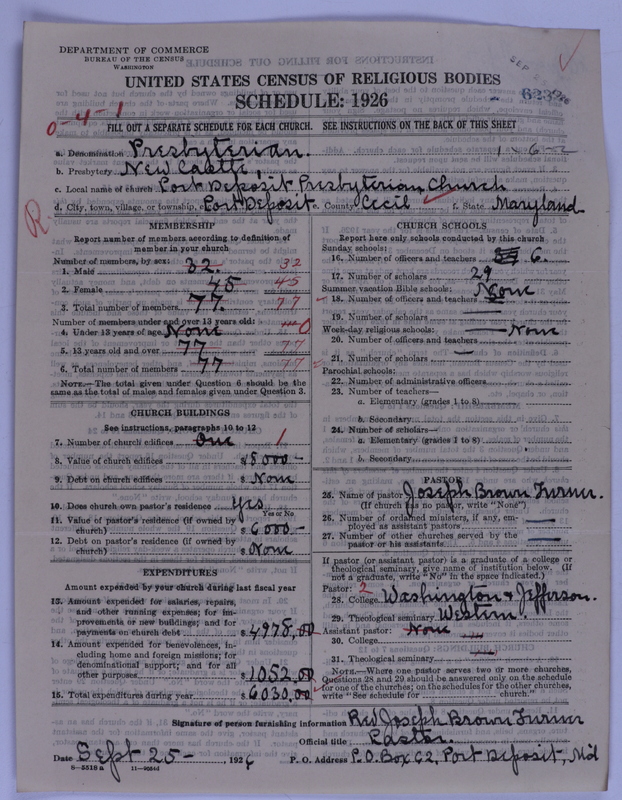 DEPARTMENT OF COMMERCE
BUREAU OF THE CENSUS
WASHINGTON
UNITED STATES CENSUS OF RELIGIOUS BODIES
SCHEDULE: 1926
SEP
6232
0-4-1
FILL OUT A SEPARATE SCHEDULE FOR EACH CHURCH. SEE INSTRUCTIONS ON THE BACK OF THIS SHEET
a. Denomination Presbyterian. 1-6-2
b. Presbytery New Castle,
c. Local name of church Port Deposit Presbyterian Church
d. City, town, village, or township, Port Deposit County Cecil f. State Maryland
R
MEMBERSHIP
Report number of members according to definition of member in your church
Number of members, by sex:
1. Male 32. 32
2. Female 45 45
3. Total number of members 77 77
Number of members under and over 13 years old:
4. Under 13 years of age None 0
5. 13 years old and over 77 77
6. Total number of members 77 77
NOTE.—The total given under Question 6 should be the same as the total of males and females given under Question 3.
CHURCH BUILDINGS
See instructions, paragraphs 10 to 12
7. Number of church edifices One 1
8. Value of church edifices $8000—
9. Debt on church edifices $ None
10. Does church own pastor's residence Yes
Yes or No
11. Value of pastor's residence (if owned by church) $6000—
12. Debt on pastor's residence (if owned by church) $None
EXPENDITURES
Amount expended by your church during last fiscal year
13. Amount expended for salaries, repairs, and other running expenses; for improvements or new buildings; and for payments on church debt $4978,00
14. Amount expended for benevolences, including home and foreign missions; for denominational support; and for all other purposes $1052,00
15. Total expenditures during year $6030,00
CHURCH SCHOOLS
Report here only schools conducted by this church
Sunday schools:
16. Number of officers and teachers 6.
17. Number of scholars 29
Summer vacation Bible schools: None
18. Number of officers and teachers
19. Number of scholars
Week-day religious schools: None
20. Number of officers and teachers
21. Number of scholars
Parochial schools:
22. Number of administrative officers
23. Number of teachers—
a. Elementary (grades 1 to 8)
b. Secondary
24. Number of scholars—
a. Elementary (grades 1 to 8)
b. Secondary
PASTOR
25. Name of pastor Joseph Brown Turner.
(If church has no pastor, write "None")
26. Number of ordained ministers, if any, employed as assistant pastors
27. Number of other churches served by the pastor or his assistants
If pastor (or assistant pastor) is a graduate of a college or theological seminary, give name of institution below. (If not a graduate, write "No" in the space indicated.)
Pastor: 2
28. College Washington & Jefferson.
29. Theological seminary Western.
Assistant pastor: None
30. College
31. Theological seminary
NOTE.—Where one pastor serves two or more churches, Questions 28 and 29 should be answered only on the schedule for one of the churches; on the schedules for the other churches, write "See schedule for church."
Signature of person furnishing information Rev Joseph Brown Turner
Official title Pastor.
Date Sept 25- , 1926 P. O. Address P.O. Box 62, Port Deposit, Md
8—5518 a 11—9064d